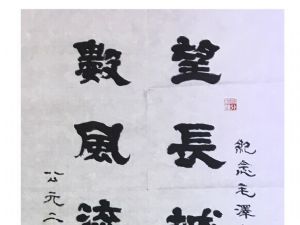 紀念毛澤
望長城
數風流
公元二